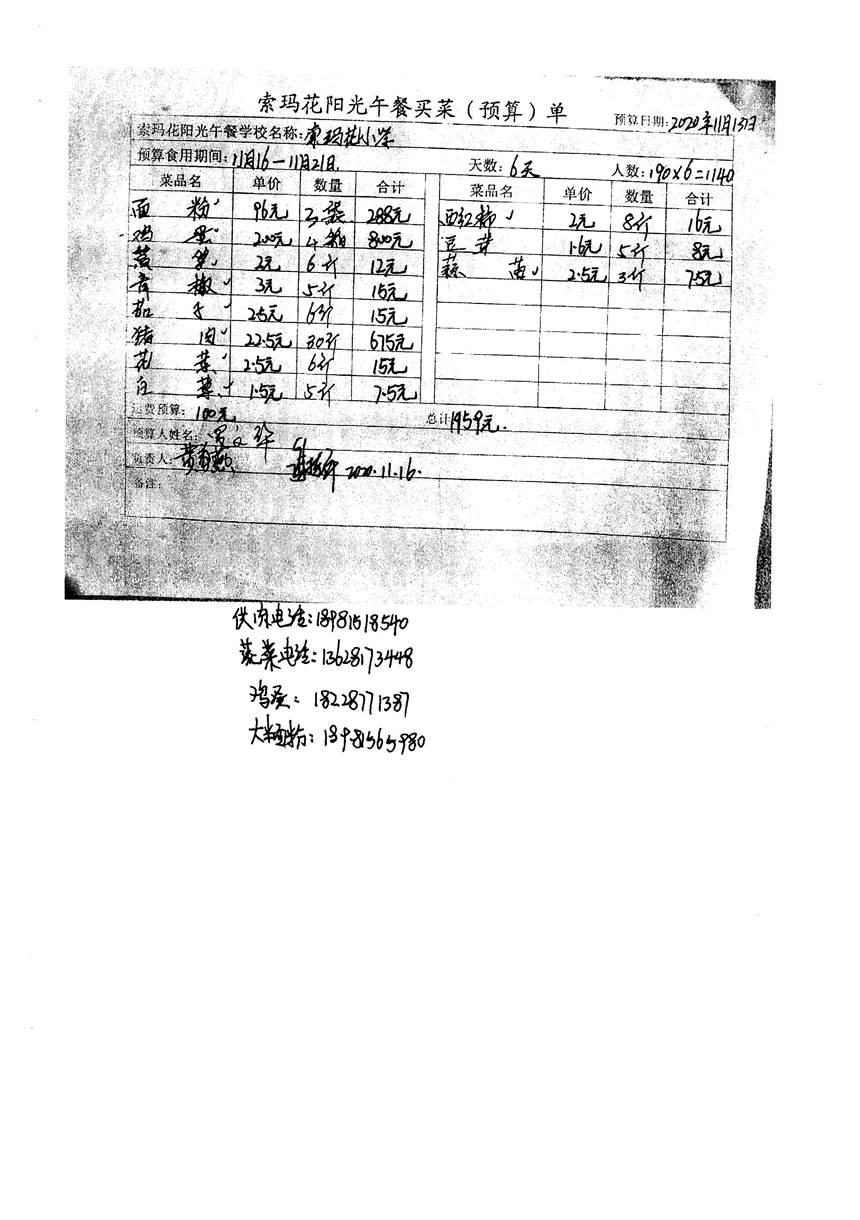 索玛花阳光午餐买菜（预算）单
预算日期：2020年11月13日
索玛花阳光午餐学校名称：索玛花小学
预算食用期间：11月16—11月21日 天数：6天 人数：190×6=1140
菜品名 单价 数量 合计 菜品名 单价 数量 合计
面粉 96元 3袋 288元 西红柿 2元 8斤 16元
鸡蛋 200元 4箱 800元 豆芽 1.6元 5斤 8元
莴笋 2元 6斤 12元 蒜苗 2.5元 3斤 7.5元
青椒 3元 5斤 15元
茄子 2.5元 6斤 15元
猪肉 22.5元 30斤 675元
花菜 2.5元 6斤 15元
白菜 1.5元 5斤 7.5元
运费预算：100元 总计1959元.
预算人姓名：
负责人： 2020.11.16.
备注：
供肉电话：18981518540
蔬菜电话：13628173448
鸡蛋：18228771387
大米面粉：13981565980